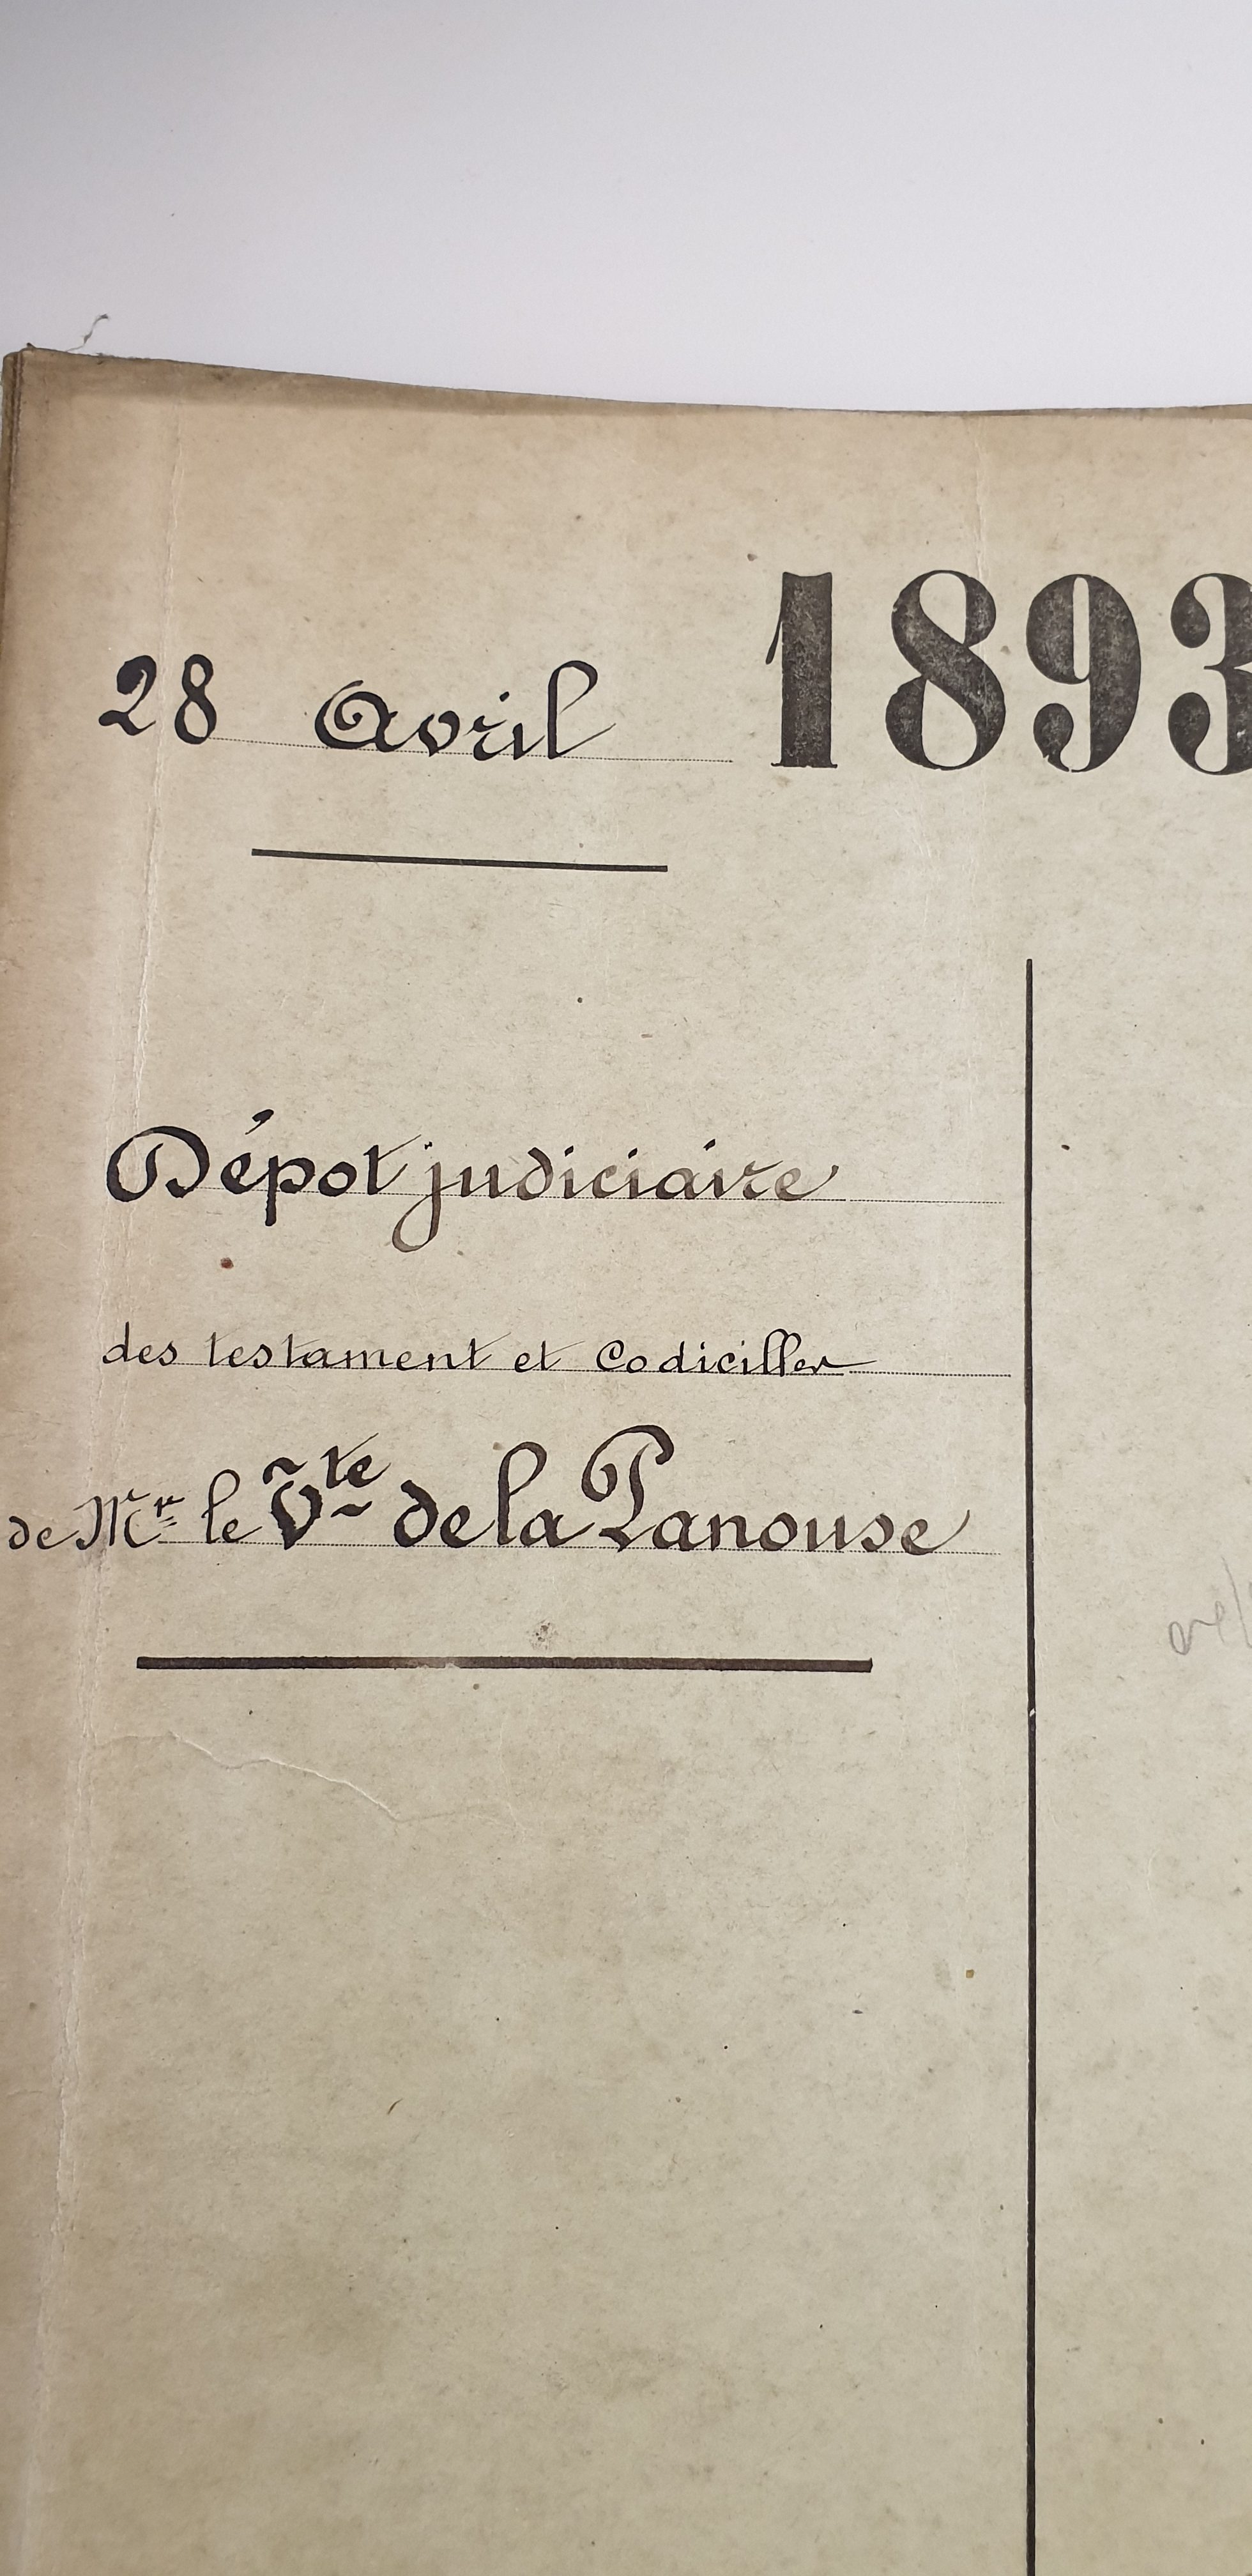 28 Avril 1893
Dépot judiciaire
des testament et Codicilles
de Mr le Vte de la Panouse